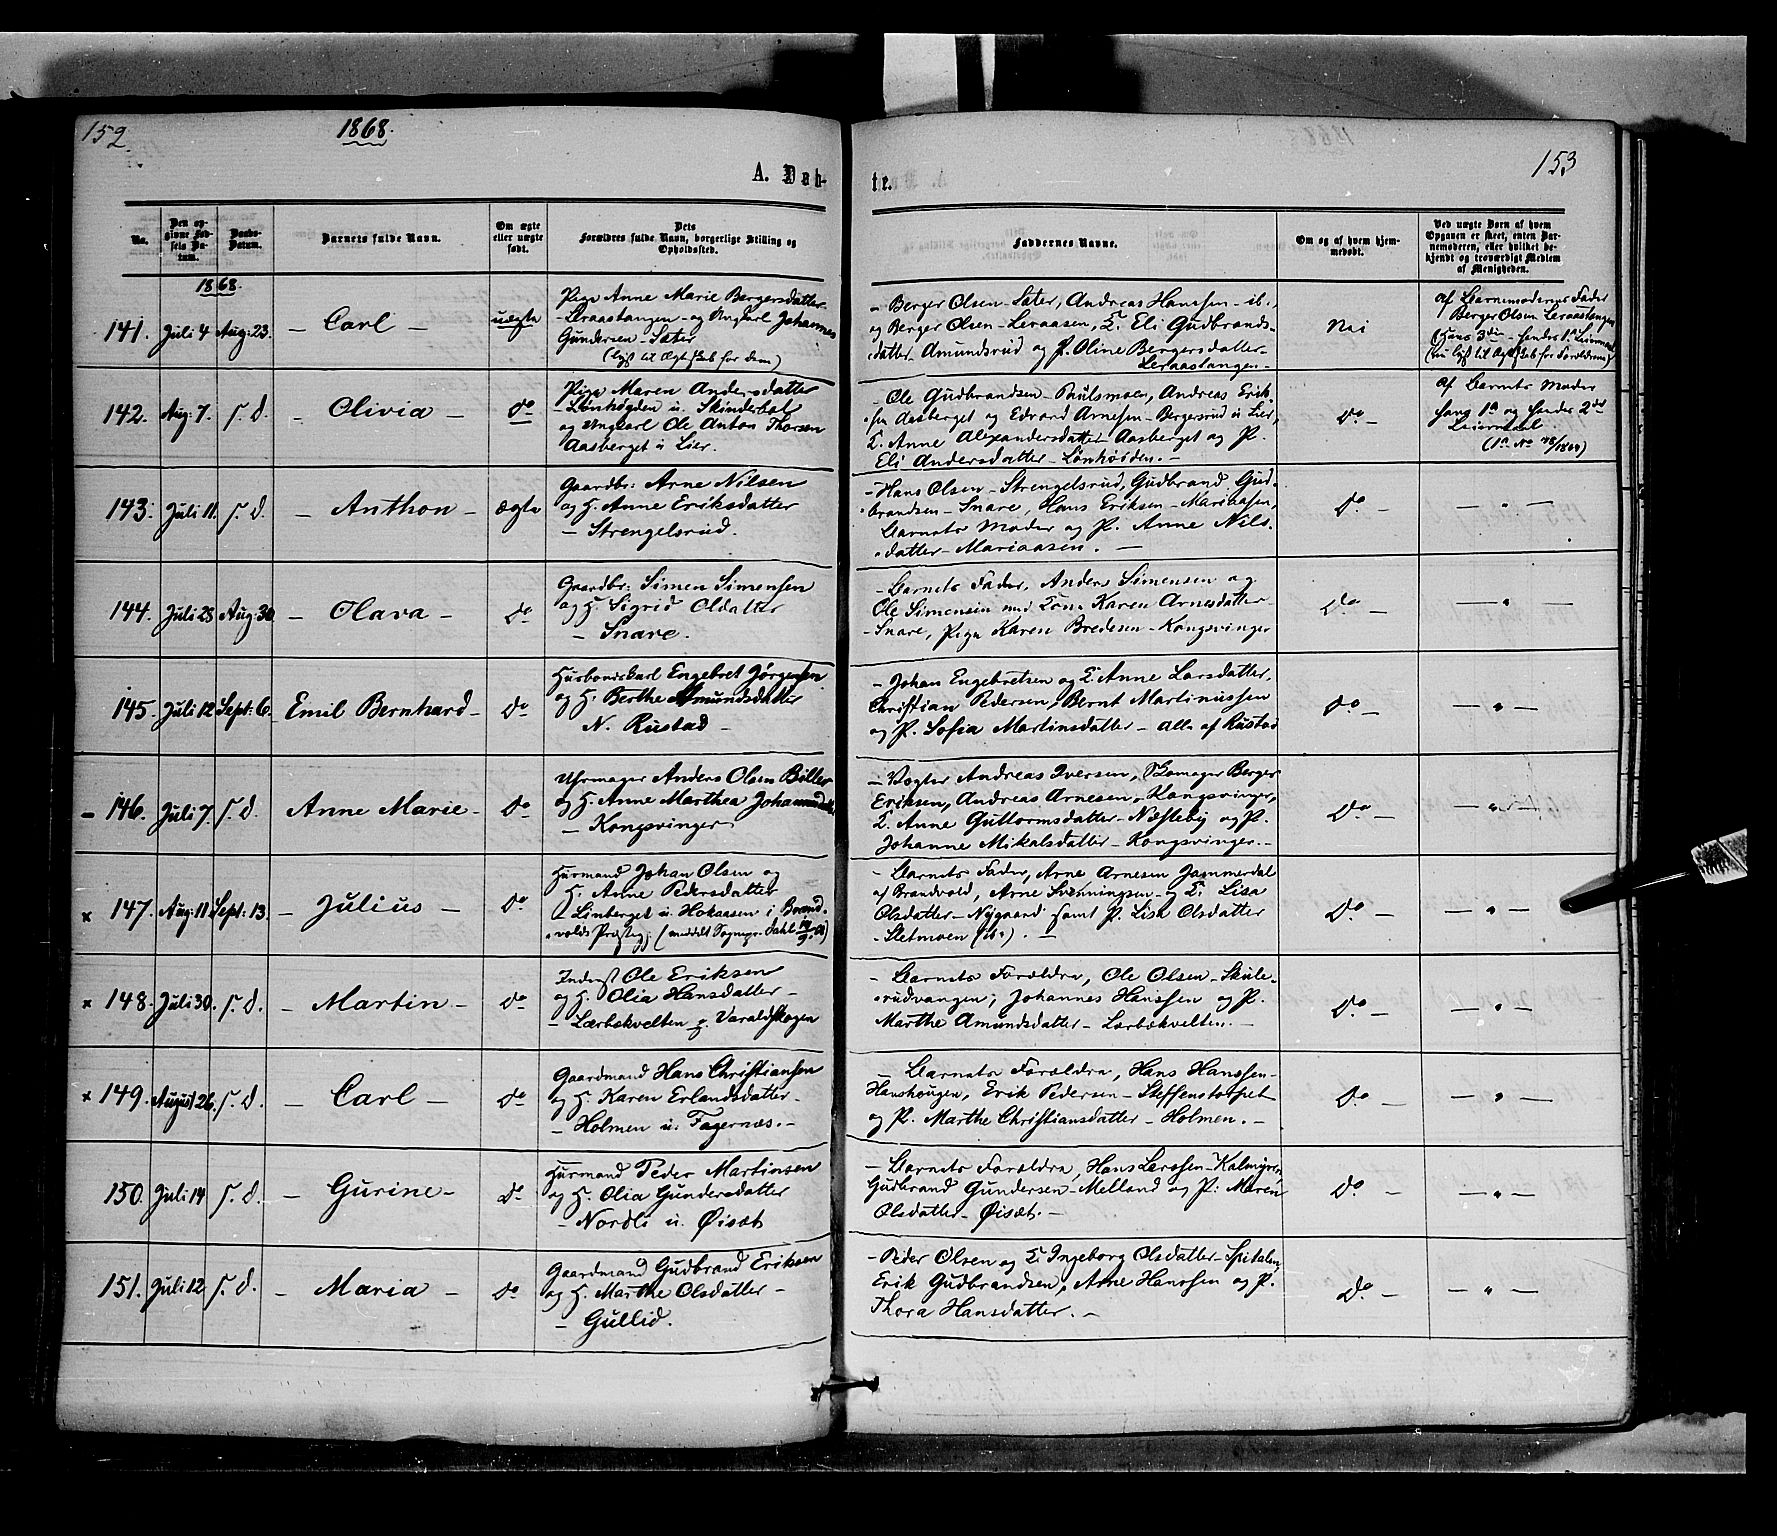 152.
1868.
A. Dåb-
No.
Den op-
givne Fød-
sels Da-
tum.
Daabs-
Datum.
Barnets fulde Navn.
Om ægte
eller uægte
født.
Dets
Forældres fulde Navn, borgerlige Stilling og
Opholdssted.
1868.
141. Juli 4 Aug: 23. – Carl – uægte
Pige Anne Marie Bergersdatter
– Leraastangen – og Ungkarl Johannes
Gundersen – Sæter
(lyst til Ægteskab for dem)
142. Aug: 7. s. d. – Olivia – do
Pige Maren Andersdatter
– Lønhøgden u. Skinderbøl
og Ungkarl Ole Anton Thorsen
Aasberget i Lier.
143. Juli 11. s. d. – Anthon – ægte
Gaardbr: Arne Nilsen
og H. Anne Eriksdatter
– Strengelsrud.
144. Juli 23 Aug: 30. – Olava – do
Gaardbr: Simen Simensen
og H. Sigrid Olsdatter
– Snare.
145. Juli 12 Sept: 6. Emil Bernhard – do
Husbondskarl Engebret Jørgensen
og H. Berthe Amundsdatter
N. Rustad –
– 146. Juli 7. s. d. Anne Marie – do
Uhrmager Anders Olsen Biller
og H. Anne Marthea Johannesdatter
– Kongsvinger
× 147. Aug: 11. Sept: 13. – Julius – do
Husmand Johan Olsen og
H. Anne Pedersdatter
– Linberget u. Hokaasen i Brand-
volds Præstegj. (meddelt Sognepr. Dahl
× 148. Juli 30. s. d. – Martin – do
Inderst Ole Eriksen
og H. Olia Hansdatter –
– Lærbækvelten p. Varaldskogen
× 149. August 26. s. d. – Carl – do
Gaardmand Hans Christiansen
og H. Karen Erlandsdatter –
– Holmen u. Fagernæs. –
150. Juli 14 s. d. – Gurine – do
Husmand Peder Martinsen
og H. Olia Gundersdatter
– Nordli u. Øisæt
151. Juli 12 s. d. – Maria – do
Gaardmand Gudbrand Eriksen
og H. Marthe Olsdatter –
– Gullid.
153
te.
Faddernes Navne.
Om og af hvem hjem-
medøbt.
Ved uægte Børn af hvem
Opgaven er skeet, enten Bar-
nemoderen, eller hvilket be-
kjendt og troværdigt Medlem
af Menigheden.
– Berger Olsen – Sæter, Andreas Hanssen – ib.,
og Berger Olsen – Leraasen, K. Eli Gudbrands-
datter Amundsrud og P. Oline Bergersdatter –
Leraastangen –
Nei
af Barnemoderens Fader
Berger Olsen Leraastangen
(Hans 3die – hendes 1ste Leiermaal
(nu lyst til Ægteskab for Forældrene)
– Ole Gudbrandsen – Paulsmoen, Andreas Erik-
sen Aasberget og Edvard Arnesen – Bergersrud i Lier,
K. Anne Alexandersdatter Aasberget og P.
Eli Andersdatter – Lønhøgden. –
do –
af Barnets Moder
hans 1ste og hendes 2det
Leiermaal.
– Hans Olsen – Strengelsrud, Gudbrand Gud-
brandsen – Snare, Hans Eriksen – Mariaasen,
Barnets Moder og P. Anne Nils-
datter – Mariaasen. –
do – – " –
– Barnets Fader, Anders Simensen og
Ole Simensen med Kone Karen Arnesdatter –
– Snare, Pige Karen Bredesen – Kongsvinger
do – – " –
– Johan Engebretsen og K. Anne Larsdatter,
Christian Pedersen, Bernt Martinussen
og P. Sofia Martinsdatter – alle af Rustad
do – – " –
– Vægter Andreas Iversen, Skomager Berger
Eriksen, Andreas Arnesen, Kongsvinger,
K. Anne Guttormsdatter – Næsteby og P.
Johanne Mikalsdatter – Kongsvinger. –
do – – " –
– Barnets Fader, Arne Arnesen Jammerdal
af Brandvold, Arne Svenningsen og K. Lisa
Olsdatter – Nygaard samt P. Lisa Olsdatter
– Sletmoen (ib.) –
do – – " –
– Barnets Forældre, Ole Olsen – Skule-
rudvangen, Johannes Hanssen og P.
Marthe Amundsdatter – Lærbækvelten. –
do – – " –
– Barnets Forældre, Hans Hanssen –
Hanshougen, Erik Pedersen – Steffenstorpet
og P. Marthe Christiansdatter – Holmen. –
do – – " –
– Barnets Forældre, Hans Larssen – Kalmyren,
Gudbrand Gundersen – Melland og P. Maren
Olsdatter – Øisæt. –
do – – " –
– Peder Olsen og K. Ingeborg Olsdatter – Spitalen,
Erik Gudbrandsen, Arne Hanssen og P.
Thora Hansdatter. –
do – – " –